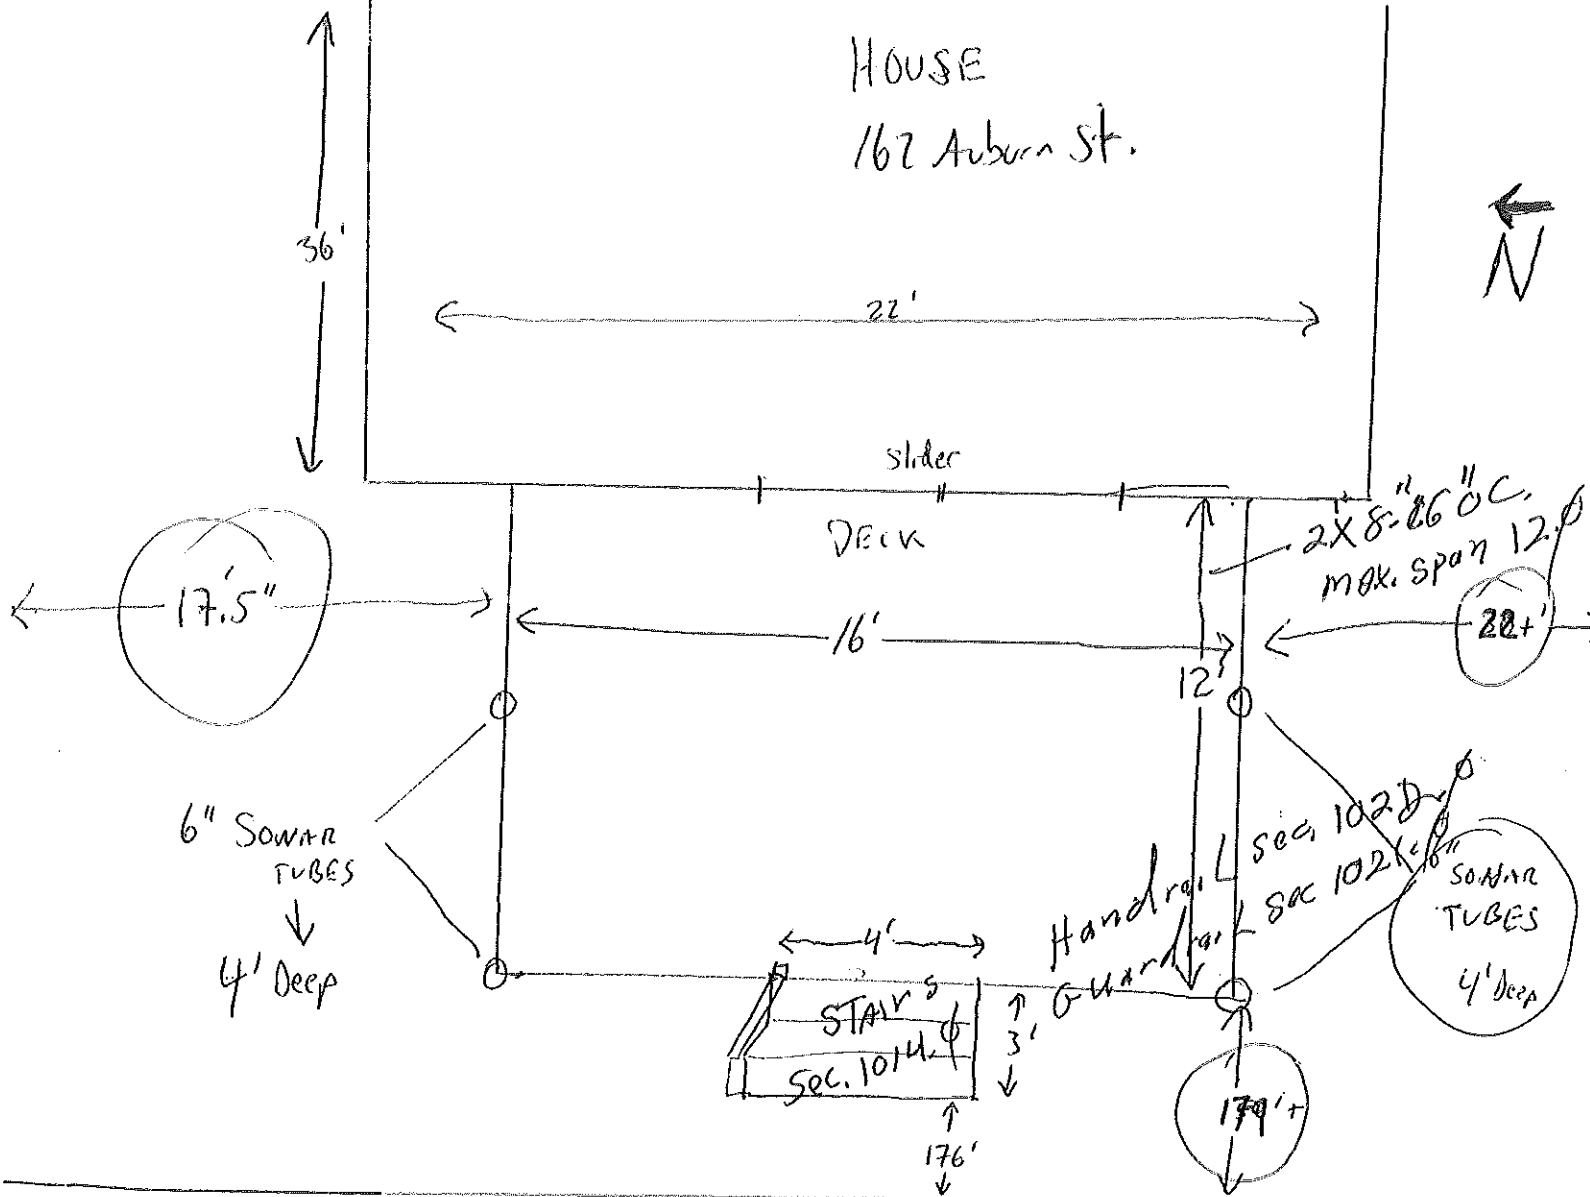 HOUSE
162 Auburn St.
36'
N
22'
slider
DECK
2X8-16" OC.
max. span 12.0
17'.5"
16'
22+'
12'
6" SONAR
TUBES
4' Deep
Handrail sec. 102D.0
Guardrail sec 102
6"
SONAR
TUBES
4' Deep
4'
STAIRS
Sec. 1014.0
3'
179'+
176'